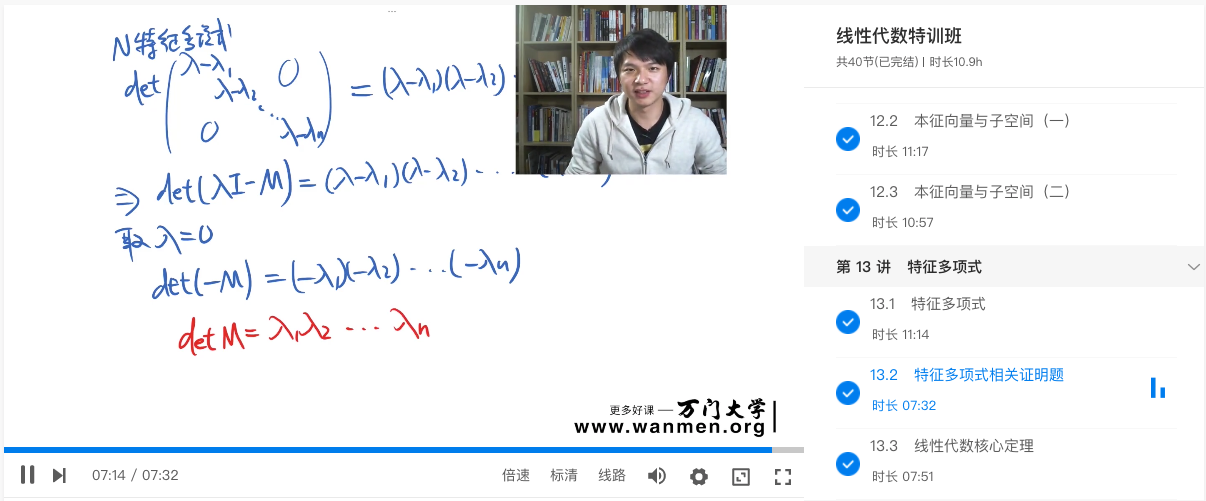 N特征多项式
det(λ-λ₁ λ-λ₂ ⋱ λ-λn 0 0) = (λ-λ₁)(λ-λ₂)
⇒ det(λI-M) = (λ-λ₁)(λ-λ₂)⋯
取 λ=0
det(-M) = (-λ₁)(-λ₂)⋯(-λn)
det M = λ₁λ₂ ⋯ λn
更多好课 — 万门大学
www.wanmen.org
07:14 / 07:32
倍速 标清 线路
线性代数特训班
共40节(已完结) | 时长10.9h
12.2 本征向量与子空间（一）
时长 11:17
12.3 本征向量与子空间（二）
时长 10:57
第 13 讲 特征多项式
13.1 特征多项式
时长 11:14
13.2 特征多项式相关证明题
时长 07:32
13.3 线性代数核心定理
时长 07:51